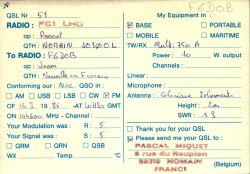 F6DOB
QSL Nr 51
RADIO: FC1 LHQ
op: Pascal
QTH: NOMAIN
To RADIO: F6DOB
op: Jean
QTH: Neuville en Ferrain
Conforming our : Nec. QSO in
AM USB LSB CW FM
of 16.3.1986 At
ON 144600 MHz - Channel :
Your Modulation was : 5
Your Signal was : 5
QRM QRN QSB
WX Temp °C
My Equipment in :
BASE PORTABLE
MOBILE MARITIME
TW/RX Multi 750 A
Power : 10 W. output
Microphone :
Antenna :
Height :
SWR : 1.3
Thank you for your QSL
Please send me your QSL to :
PASCAL MIQUET
5 rue du Roupion
59310 NOMAIN
FRANCE
(Belgium)